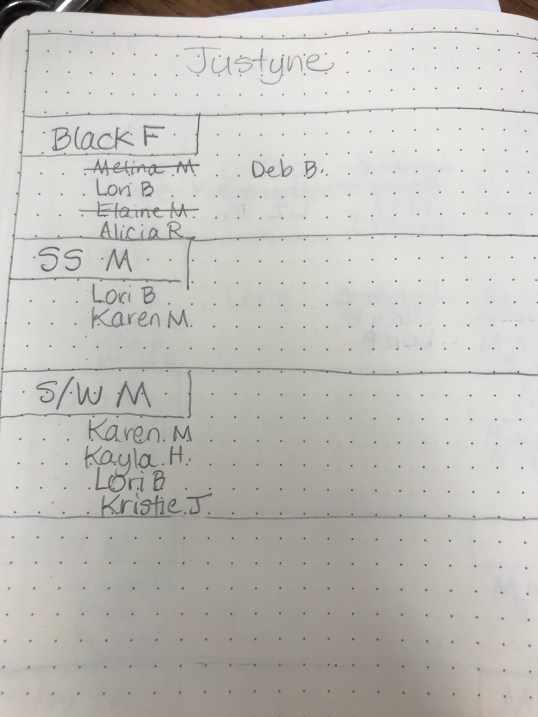 Justyne
Black F
Melina M Deb B.
Lori B
Elaine M.
Alicia R
SS M
Lori B
Karen M.
S/W M
Karen. M
Kayla. H.
Lori B
Kristie. J.